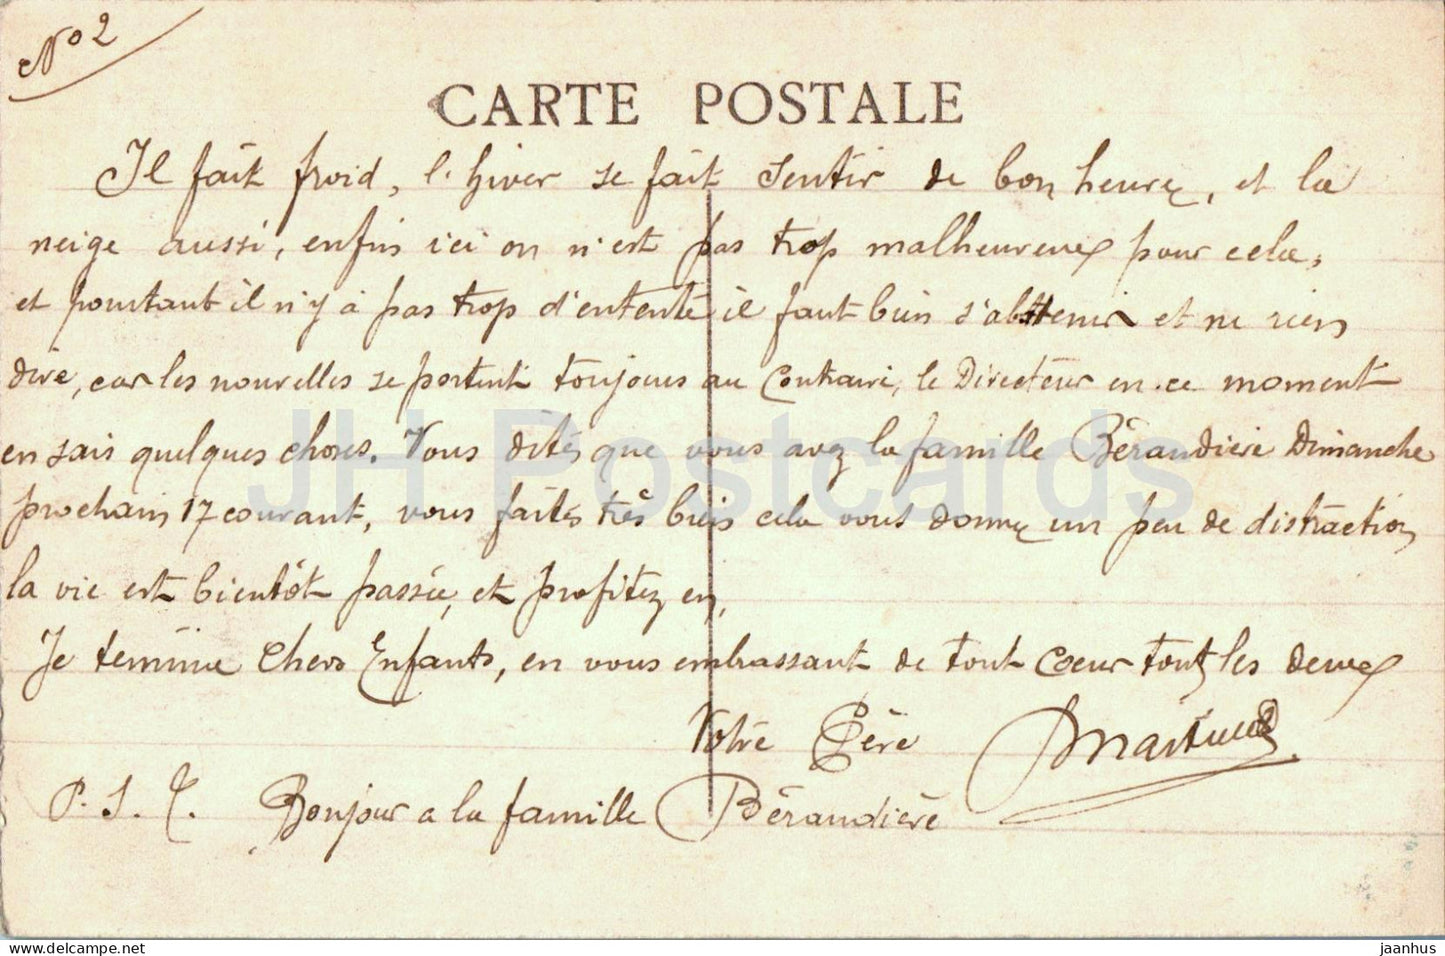 No 2
CARTE POSTALE
Il fait froid, l'hiver se fait sentir de bon heure, et la
neige aussi, enfin ici on n'est pas trop malheureux pour cela,
et pourtant il n'y à pas trop d'entente il faut bien s'abstenir et ne rien
dire, car les nouvelles se portent toujours au contraire, le Directeur en ce moment
en sais quelques choses. Vous dites que vous avez la famille Bérandière Dimanche
prochain 17 courant, vous faites très bien cela vous donne un peu de distraction
la vie est bientôt passée, et profitez en,
Je temine Chers Enfants, en vous embrassant de tout coeur tout les deux
Votre Père
P. S. Bonjour a la famille Bérandière
JH Postcards
www.delcampe.net
jaanhus